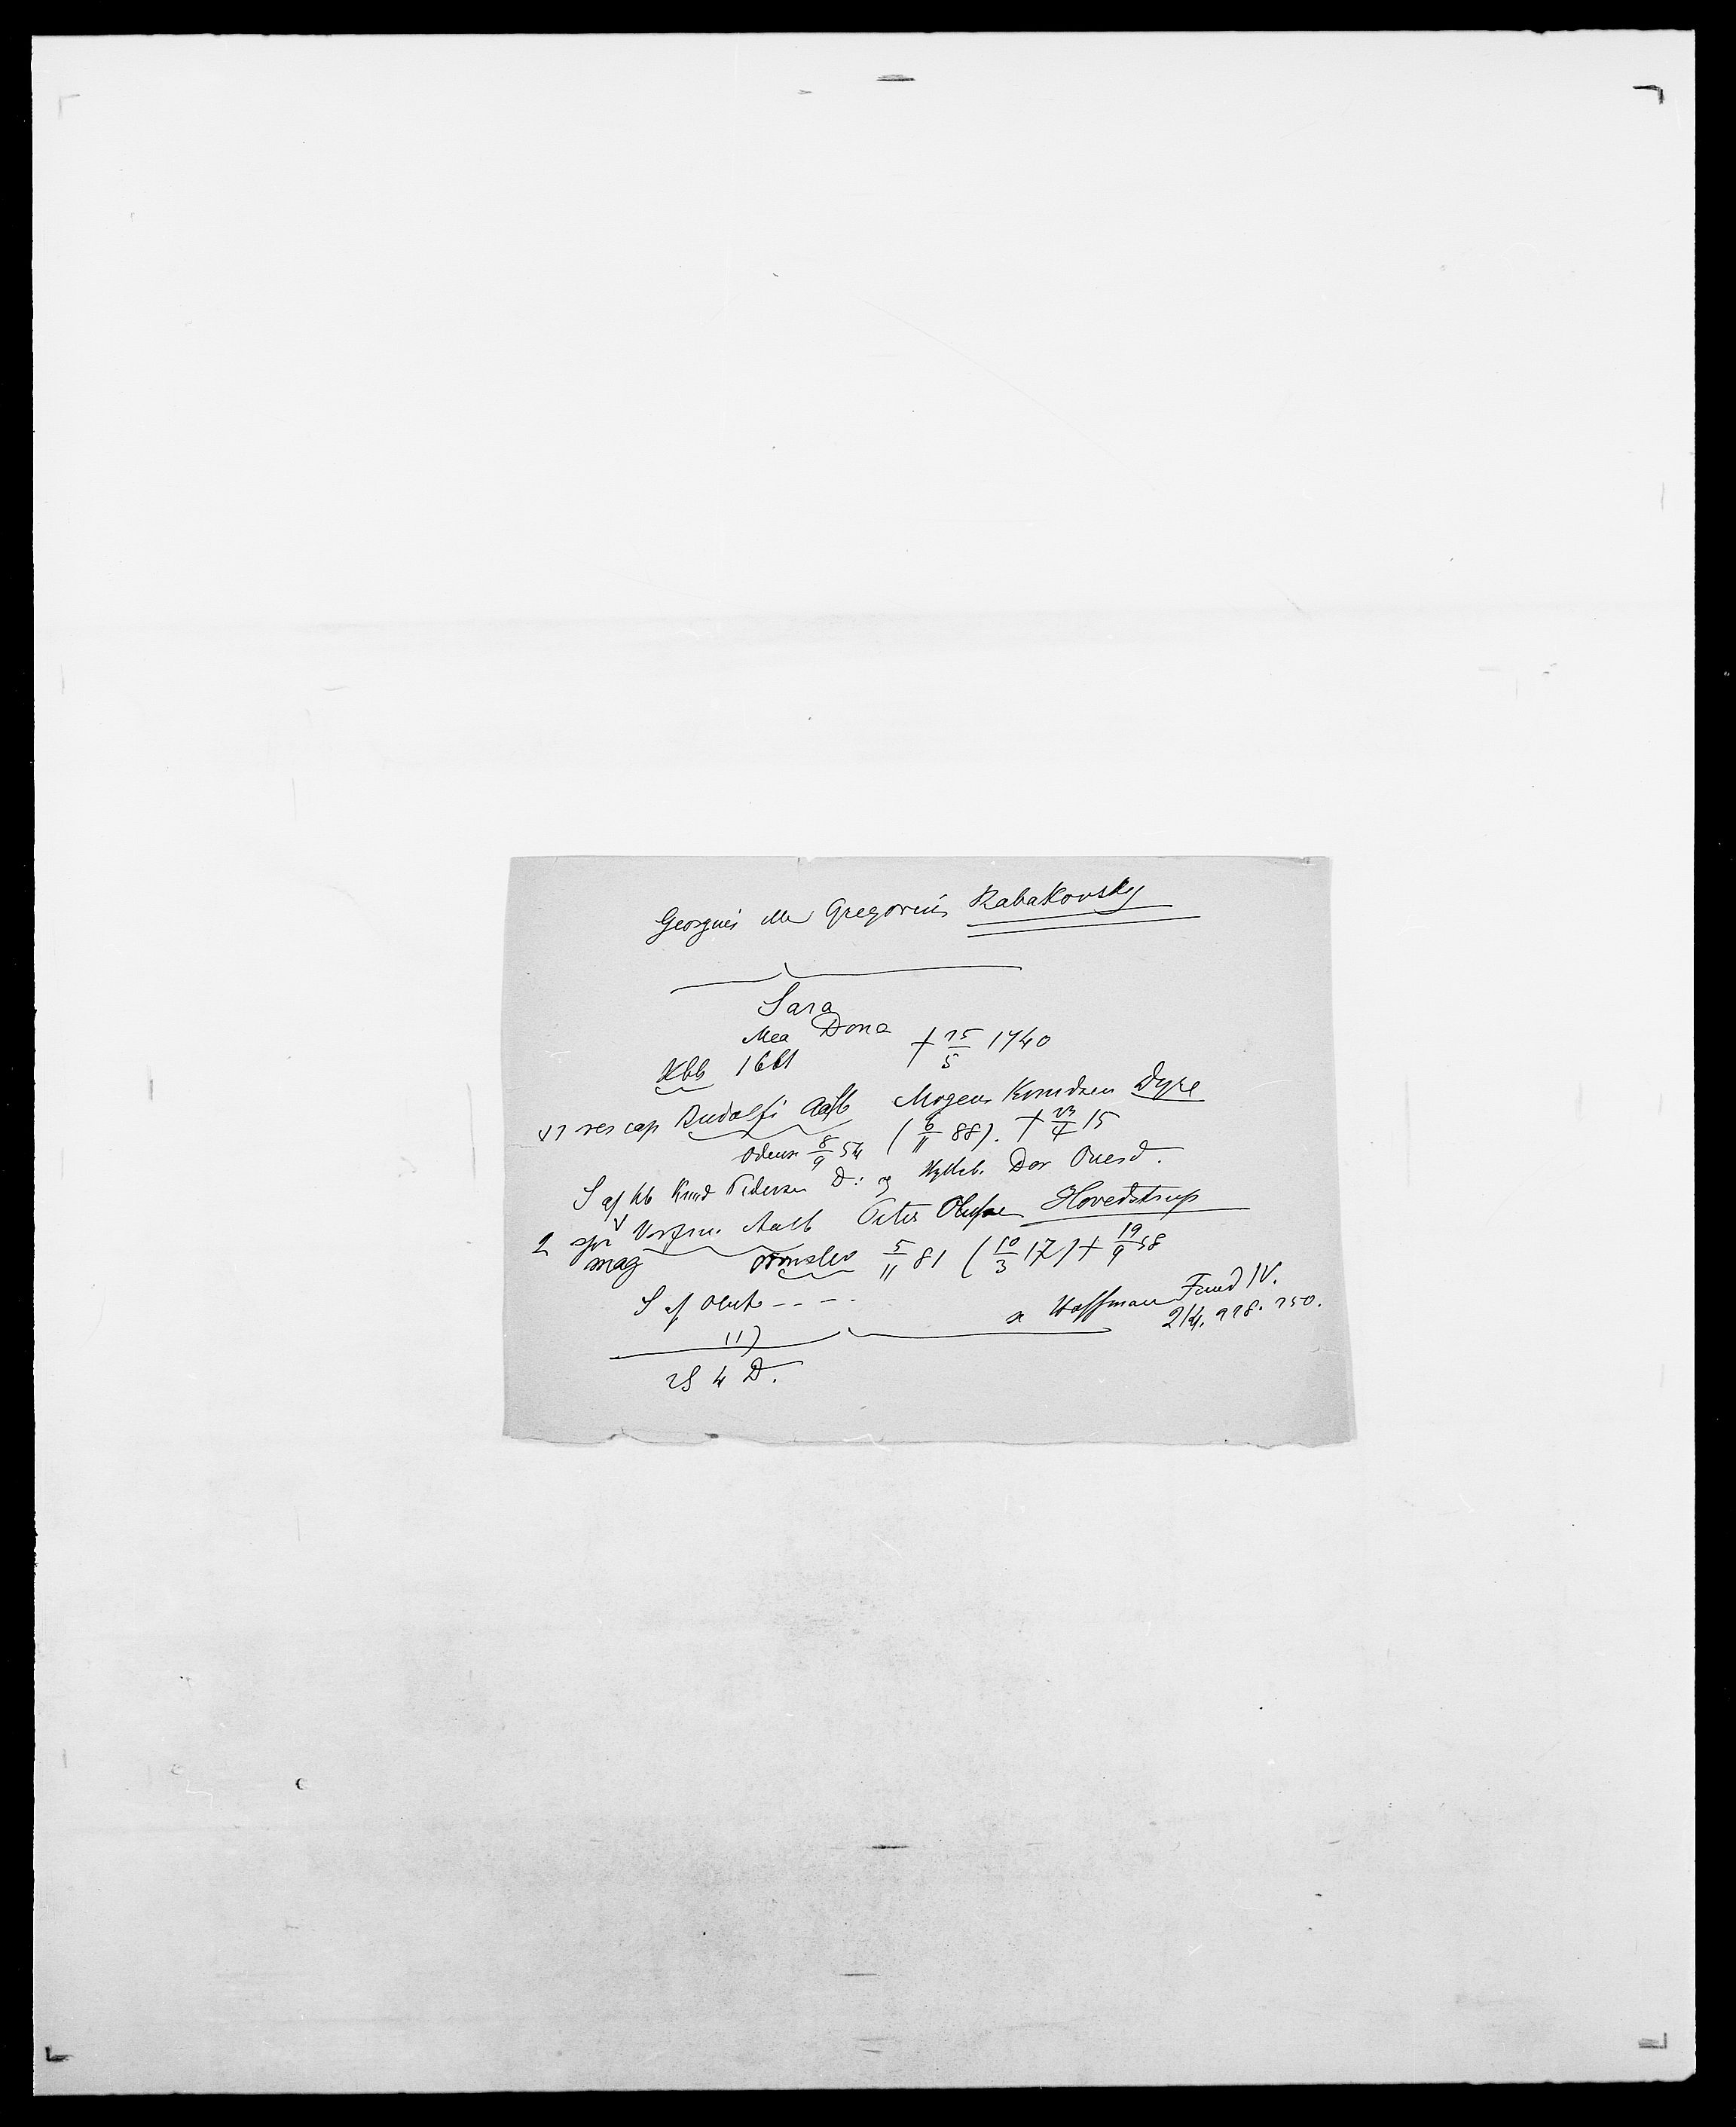 Georgius ell Gregorius Rabakovsky
Sara
Mea Dona † 25/5 1740
Kbh 1661
~1 res cap Budolfi Aalb Mogens Knudsen Dyre
Odense 8/9 54 (6/11 88). † 23/4 15
S af Kb Knud Pedersen D: og Dor Ouesd.
2 spr V Vor frue Aalb Peter Olufsen Hovedstrup
mag Ormslev 5/11 81 (10/3 17) † 19/9 38
S af Oluf - - - -
Hoffman Fund IV.
214. 228. 250.
(1)
2S 4 D.